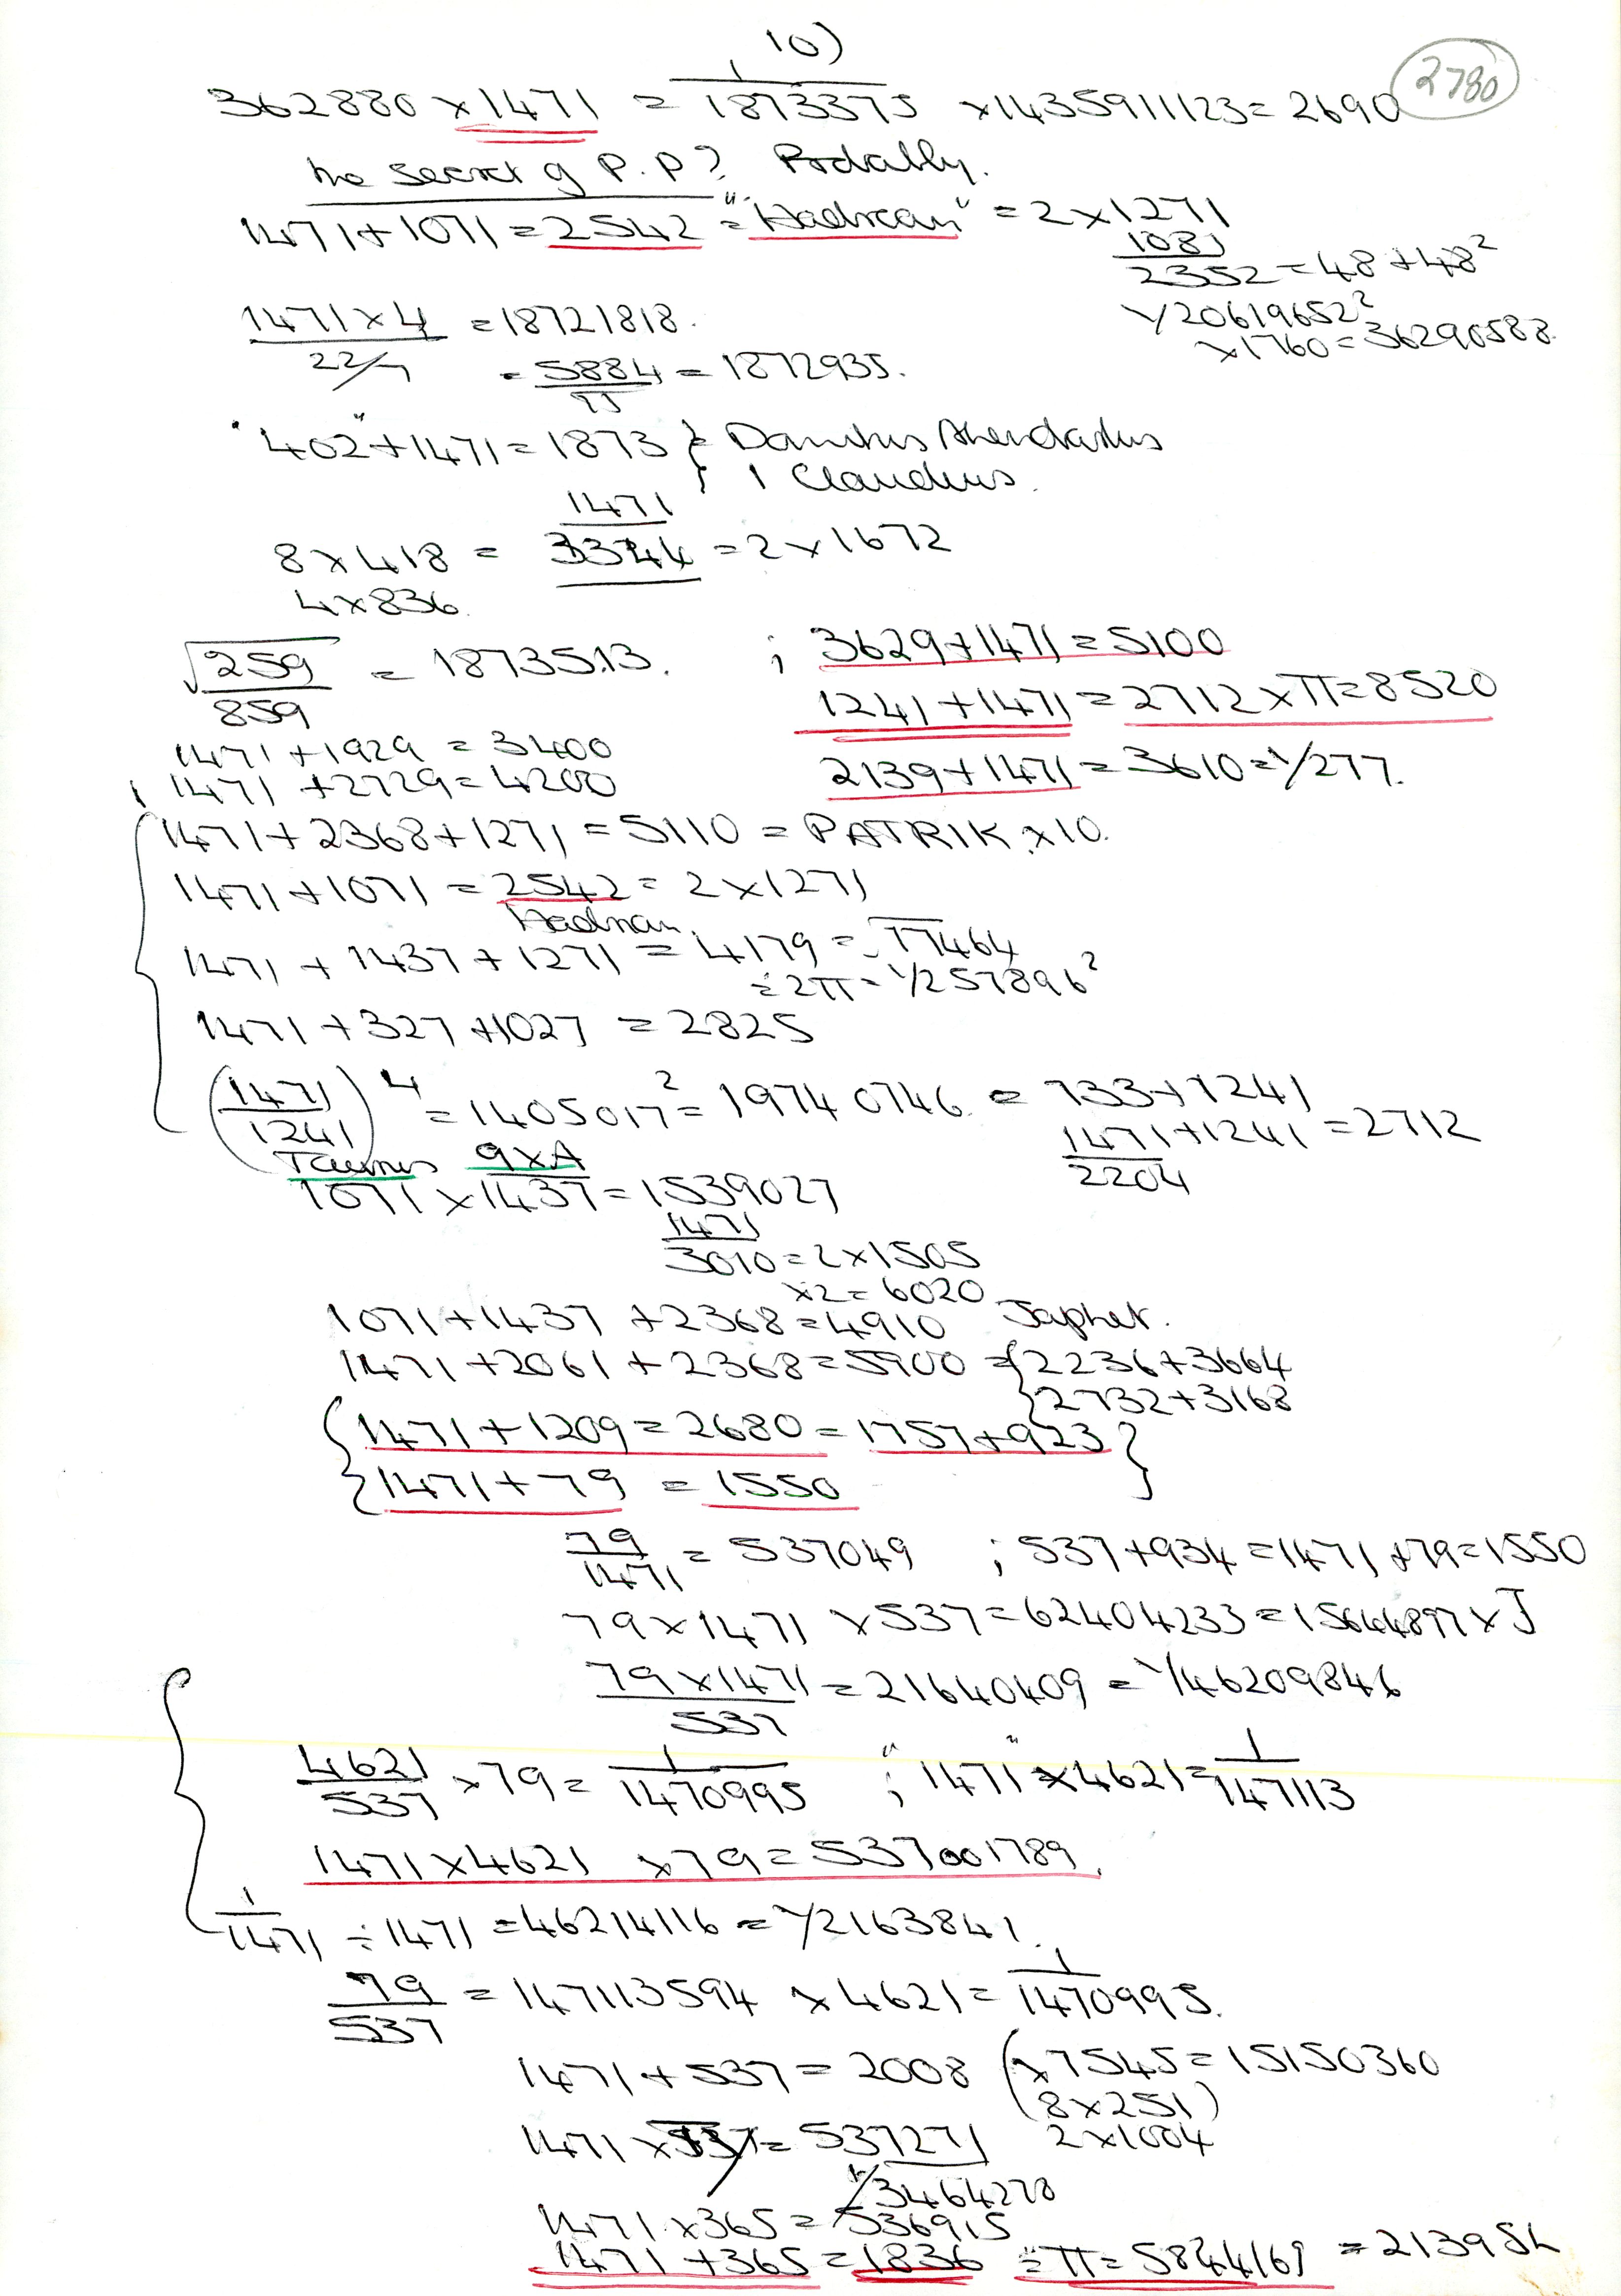 10)
2780
362880 × 1471 = 1/1873375 × 1435911123 = 2690
the secret of P.P? Probably.
1471 + 1071 = 2542 = "Hadrean" = 2 × 1271
1081
2352 = 48 + 48²
1/20619652²
× 1760 = 36290588.
1471 × 4 / 22/7 = 18721818.
= 5884/π = 1872935.
"402" + 1471 = 1873 }
1 Claudius.
1471
8 × 418 = 3344 = 2 × 1672
4 × 836.
√259/859 = 1873513. ; 3629 + 1471 = 5100
1241 + 1471 = 2712 × π = 8520
1471 + 1929 = 3400
2139 + 1471 = 3610 = 1/277.
1471 + 2729 = 4200
1471 + 2368 + 1271 = 5110 = PATRIK. × 10.
1471 + 1071 = 2542 = 2 × 1271
Hadrian.
1471 + 1437 + 1271 = 4179 = √17464
÷ 2π = 1/257896²
1471 + 327 + 1027 = 2825
(1471/1241)⁴ = 1405017² = 19740746. = 733 + 1241
1471 + 1241 = 2712
2204
Taurus 9×A
1071 × 1437 = 1539027
1471
3010 = 2 × 1505
×2 = 6020
1071 + 1437 + 2368 = 4910 Japhet.
1471 + 2061 + 2368 = 5900 = { 2236 + 3664
2732 + 3168
{ 1471 + 1209 = 2680 = 1757 + 923 }
{ 1471 + 79 = 1550 }
79/1471 = 537049 ; 537 + 934 = 1471 + 79 = 1550
79 × 1471 × 537 = 62404233 = 15644897 × J
79 × 1471 / 537 = 21640409 = 1/46209846
4621/537 × 79 = 1/1470995 ; "1471" × 4621 = 1/147113
1471 × 4621 × 79 = 537001789.
1/1471 ÷ 1471 = 46214116 = 1/2163841.
79/537 = 147113594 × 4621 = 1/1470995.
1471 + 537 = 2008 (× 7545 = 15150360
(8 × 251)
1471 × 537 = 537271 2 × 1004
1/3464278
1471 × 365 = 536915
1471 + 365 = 1836 ÷ π = 5844169 = 21395L